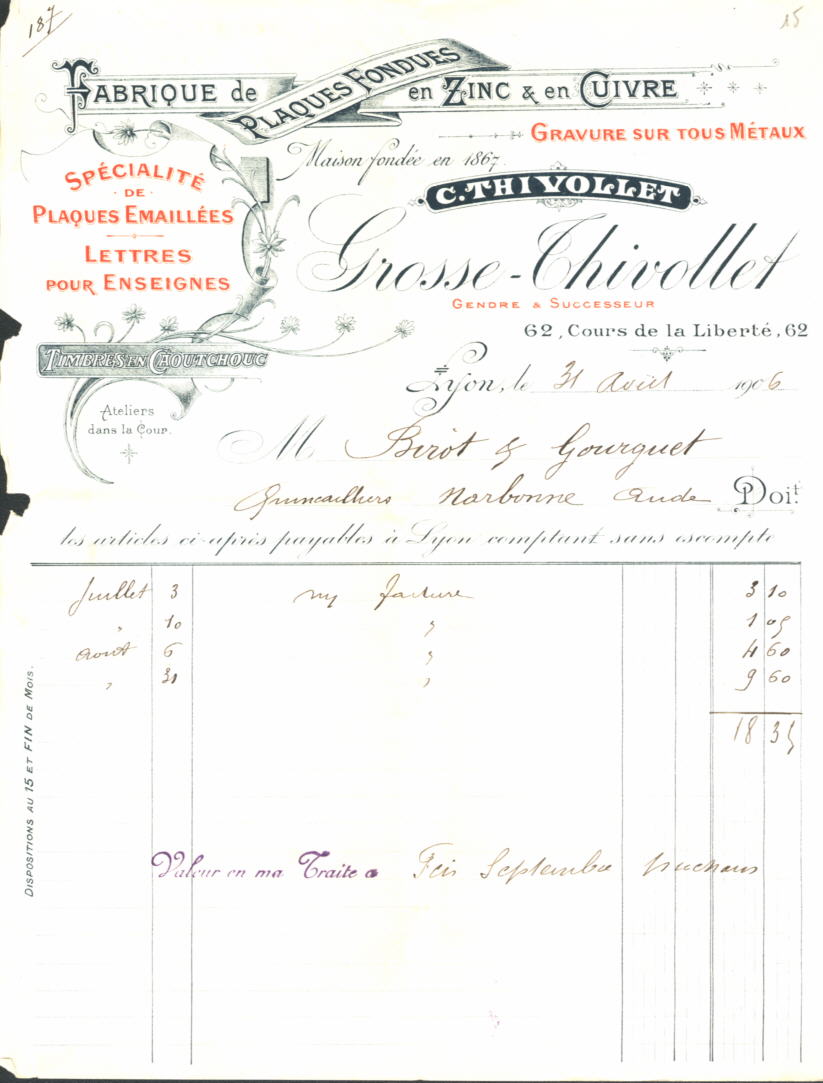 187
15
FABRIQUE de PLAQUES FONDUES en ZINC & en CUIVRE
GRAVURE SUR TOUS MÉTAUX
Maison fondée en 1867.
SPÉCIALITÉ
DE
PLAQUES EMAILLÉES
LETTRES
POUR ENSEIGNES
C. THIVOLLET
Grosse-Thivollet
GENDRE & SUCCESSEUR
62, Cours de la Liberté, 62
TIMBRES EN CAOUTCHOUC
Ateliers
dans la Cour.
Lyon, le 31 Août 1906
M Birot & Gourguet
Quincailliers Narbonne Aude Doit
les articles ci-après payables à Lyon comptant sans escompte
Juillet 3 facture 3 10
" 10 " 1 05
Août 6 " 4 60
" 31 " 9 60
18 35
DISPOSITIONS AU 15 ET FIN DE MOIS.
Valeur en ma Traite a Fin Septembre prochain